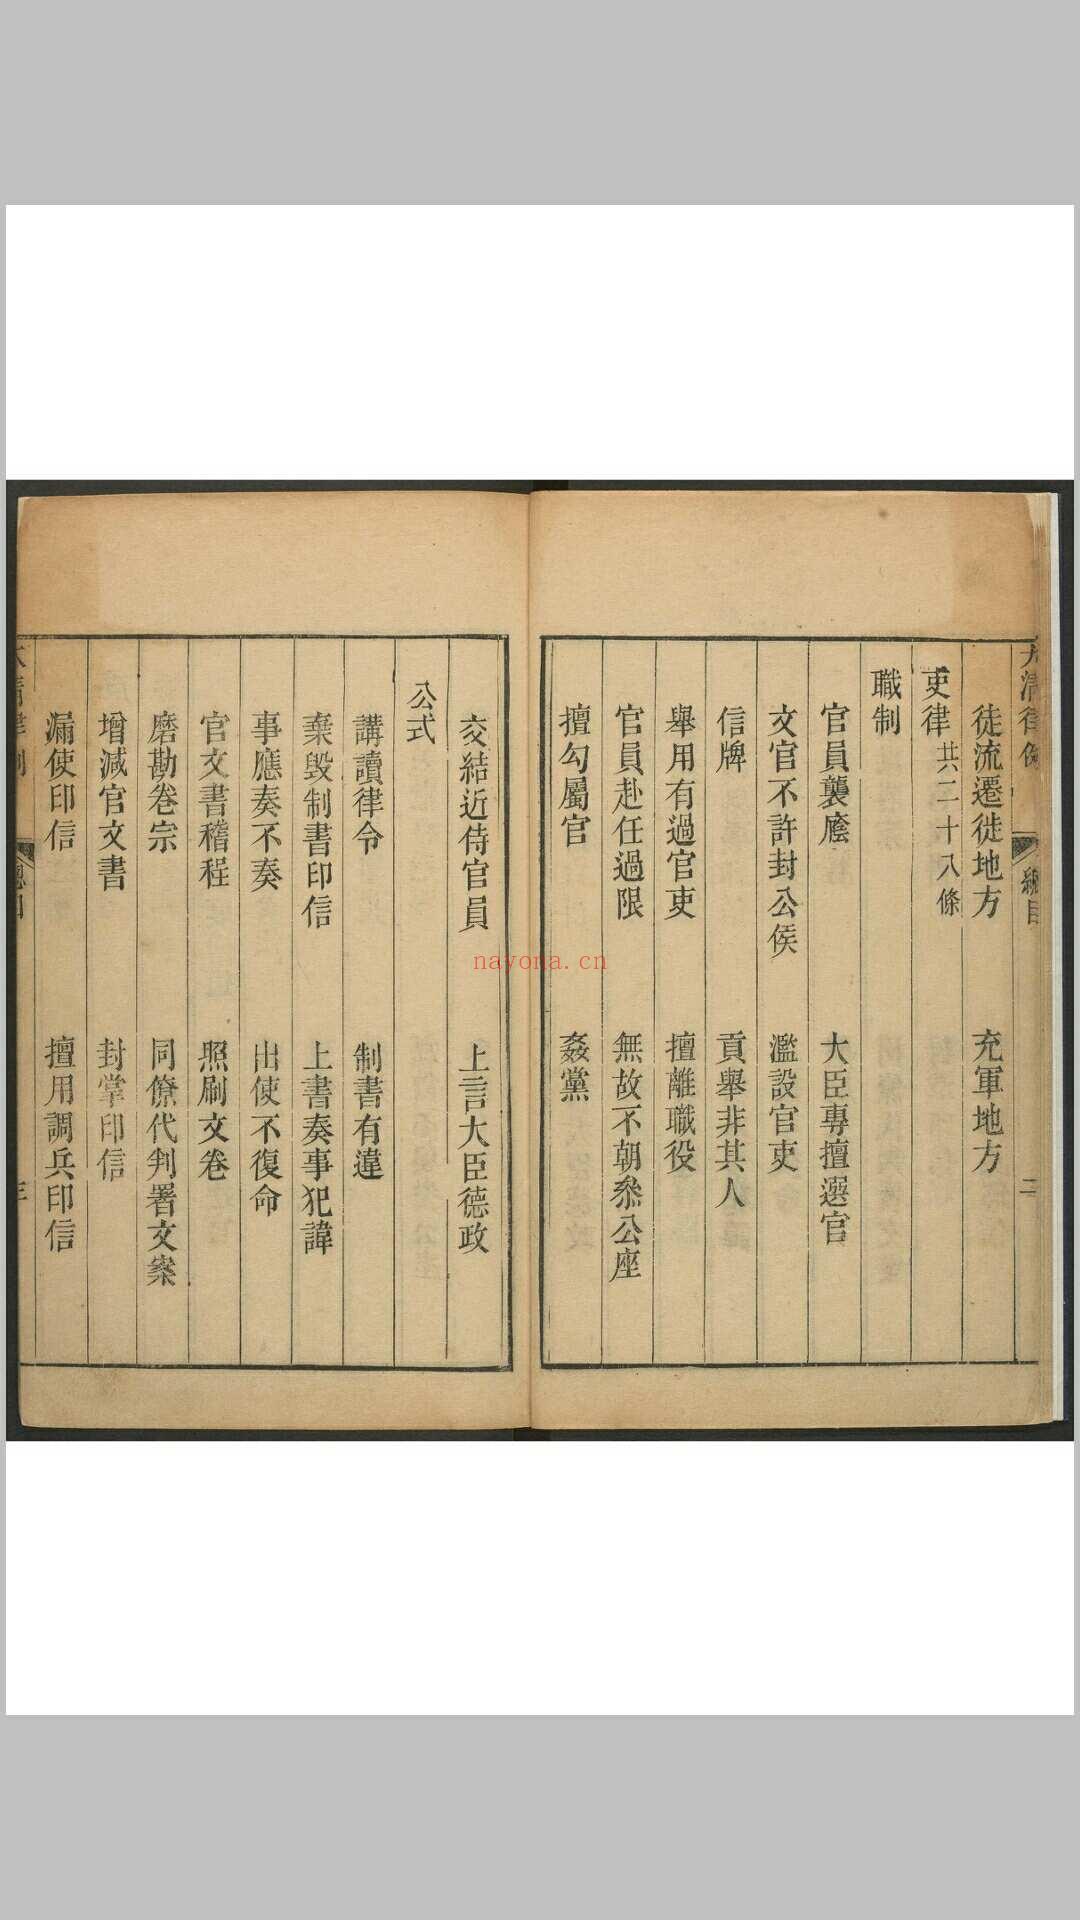 大清律例 總目 二
徒流遷徙地方 充軍地方
吏律 共二十八條
職制
官員襲廕 大臣專擅選官
文官不許封公侯 濫設官吏
信牌 貢舉非其人
舉用有過官吏 擅離職役
官員赴任過限 無故不朝叅公座
擅勾屬官 姦黨
交結近侍官員 上言大臣德政
公式
講讀律令 制書有違
棄毀制書印信 上書奏事犯諱
事應奏不奏 出使不復命
官文書稽程 照刷文卷
磨勘卷宗 同僚代判署文案
增減官文書 封掌印信
漏使印信 擅用調兵印信
nayona.cn